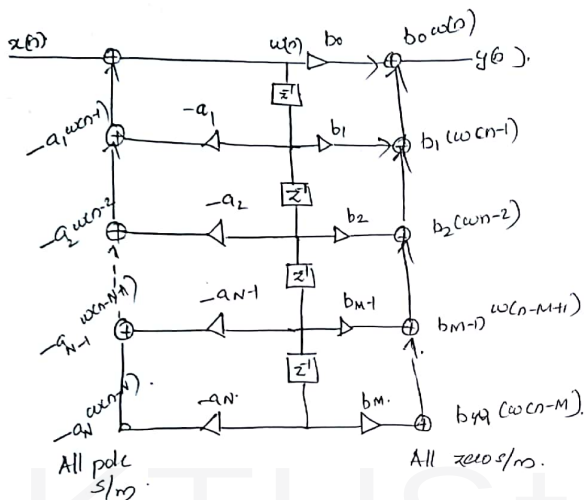 x(n) w(n) b₀ b₀ w(n) y(n).
z⁻¹
-a₁w(n-1) -a₁ b₁ b₁(w(n-1)
z⁻¹
-a₂w(n-2 -a₂ b₂ b₂(wn-2)
z⁻¹
-a_{N-1} w(n-N+1) -a_{N-1} b_{M-1} b_{M-1)} w(n-M+1)
z⁻¹
-a_N w(n-N). -a_N. b_M. (w(n-M).
All pole All zero s/m.
s/m.
KTUSt